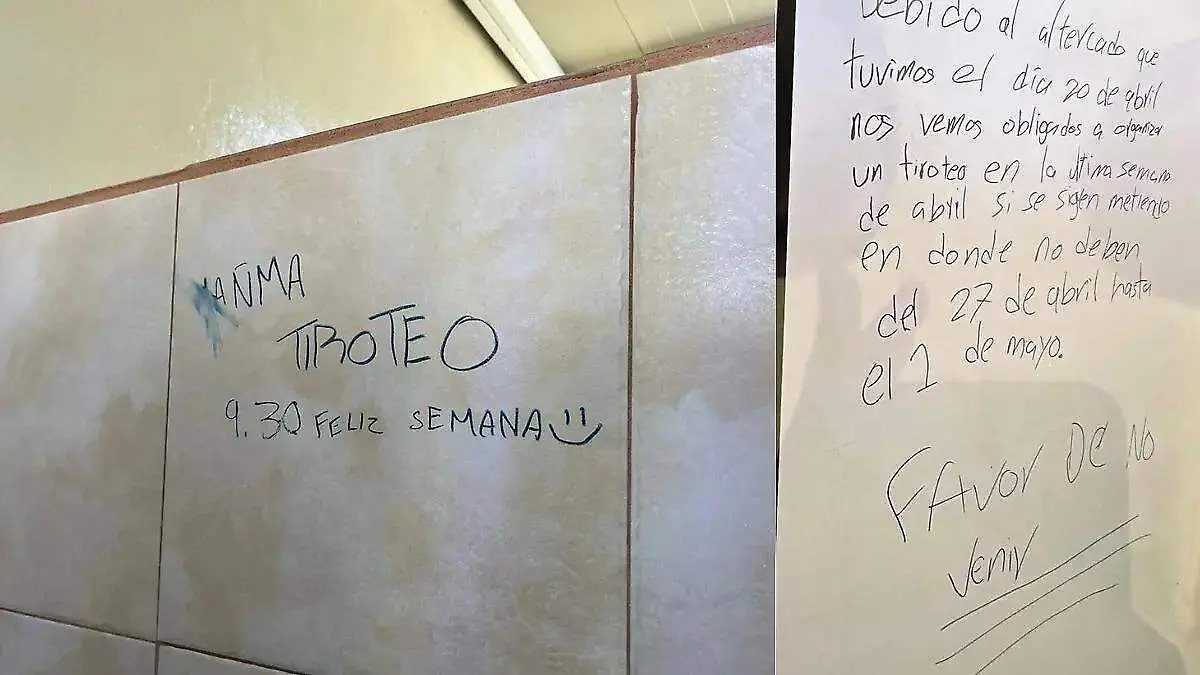 MAÑMA
TIROTEO
9.30 FELIZ SEMANA
DEBIDO al altercado que
tuvimos el día 20 de abril
nos vemos obligados a organizar
un tiroteo en la última semana
de abril si se sigen metiendo
en donde no deben
del 27 de abril hasta
el 1 de mayo.
FAvor De No
venir